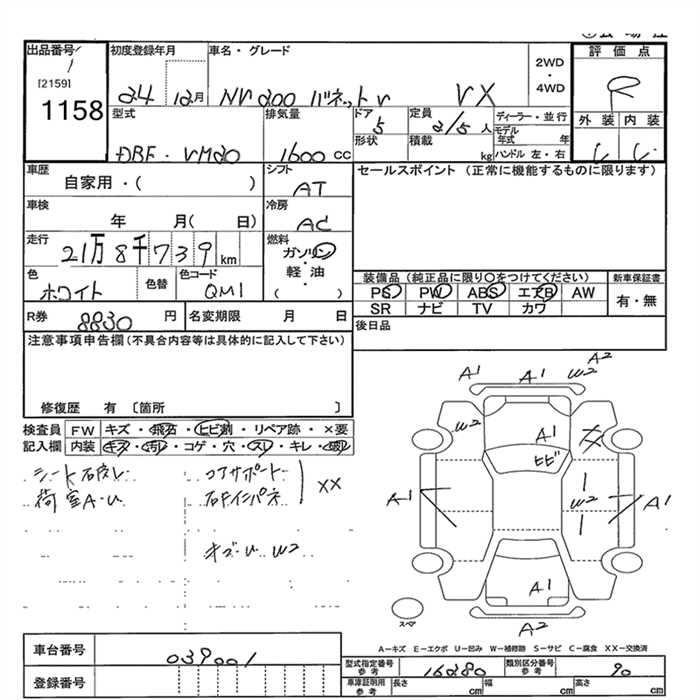 出品番号
[2159]
1158
初度登録年月
24 12月
車名・グレード
NV200 バネットV VX
2WD
・
4WD
評価点
R
外装 内装
型式
DBF-VM20
排気量
1600 cc
ドア
5
形状
定員
2/5人
積載
kg
ディーラー・並行
モデル年式 年
ハンドル 左・右
車歴
自家用・( )
シフト
AT
セールスポイント (正常に機能するものに限ります)
車検
年 月( 日)
冷房
AC
走行
21万8千739km
燃料
ガソリン
・
軽油
( )
色
ホワイト
色替
色コード
QM1
装備品 (純正品に限り○をつけてください)
PS PW ABS エアB AW
SR ナビ TV カワ
新車保証書
有・無
R券
8830円
名変期限 月 日
後日品
注意事項申告欄(不具合内容等は具体的に記入して下さい)
修復歴 有 〔箇所 〕
検査員
記入欄
FW キズ・飛石・ヒビ割・リペア跡・×要
内装 キズ・汚れ・コゲ・穴・スレ・キレ・破れ
シート破れ
荷室A・U
コアサポート
右Fインパネ
XX
キズ・U W2
A1 A1 W2 A2
W2 A1
ヒビ
A1 W2 A1
A1
A2
スマ
A-キズ E-エクボ U-凹み W-補修跡 S-サビ C-腐食 XX-交換済
車台番号
039001
登録番号
型式指定番号
参考
16280
類別区分番号
参考
90
車庫証明用
参考
長さ cm
幅 cm
高さ cm